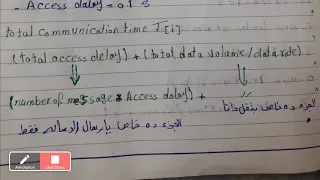 - Access dalay = 0.1 s
total communication time T[i]
(total access delay) + (total data volume / data rate)
(number of message * Access dalay) + "
الجزء ده خاص بنقل داتا
الجزء ده خاص بإرسال الرساله فقط
Annotation